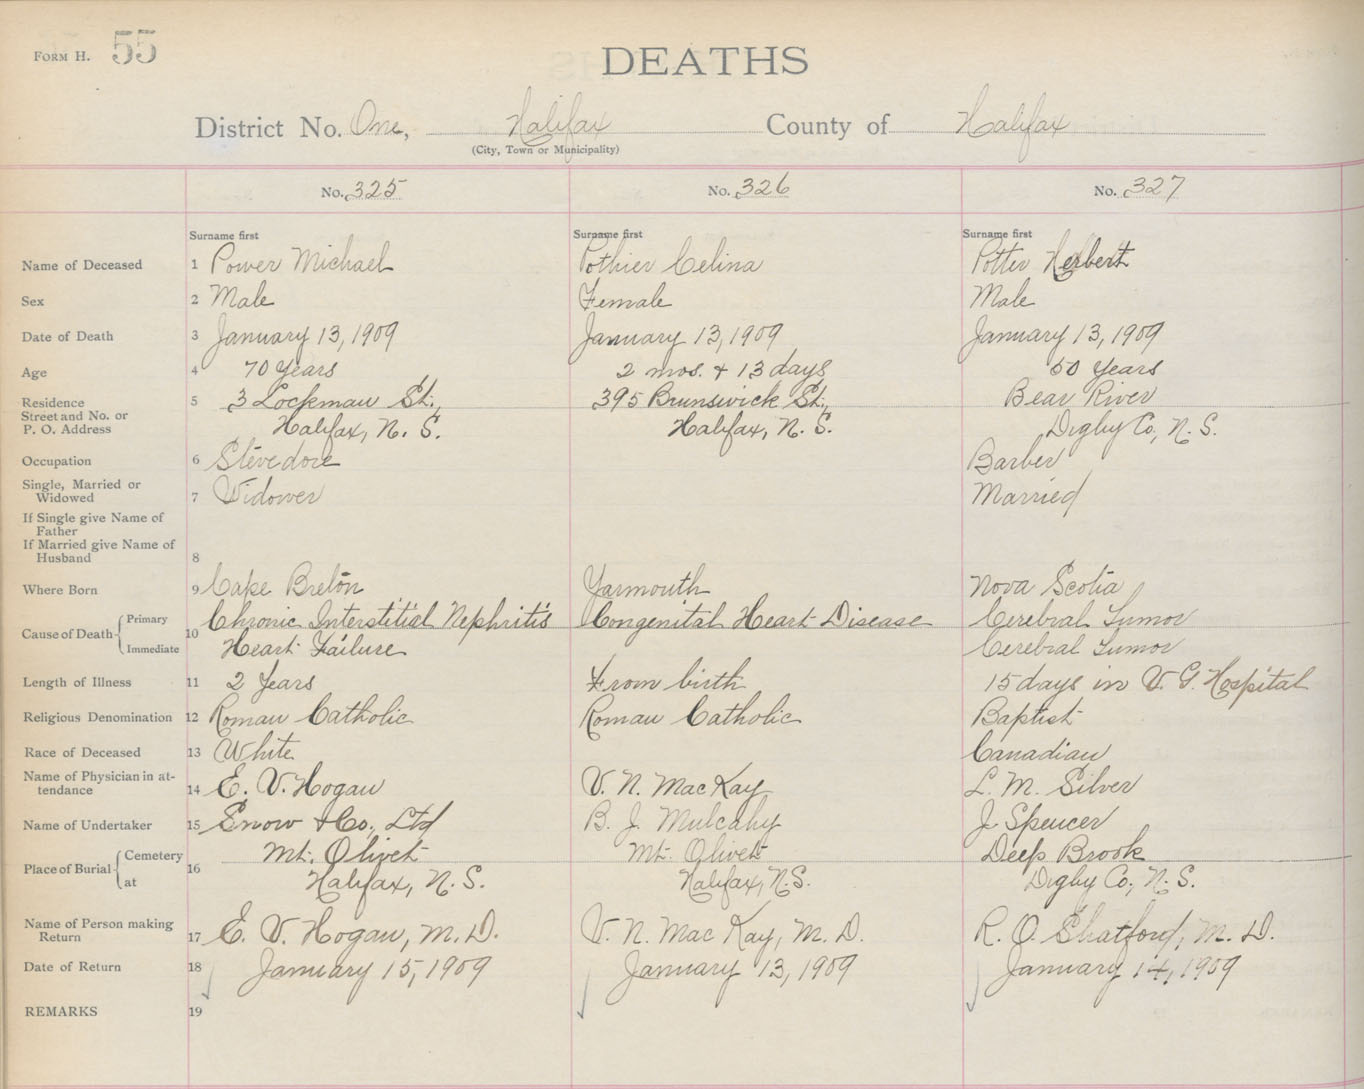 FORM H. 55
DEATHS
District No. One, Halifax County of Halifax
(City, Town or Municipality)
No. 325 No. 326 No. 327
Surname first Surname first Surname first
Name of Deceased 1 Power Michael Pothier Celina Potter Herbert
Sex 2 Male Female Male
Date of Death 3 January 13, 1909 January 13, 1909 January 13, 1909
Age 4 70 Years 2 mos. + 13 days 50 Years
Residence 5 3 Lockman St., 395 Brunswick St., Bear River
Street and No. or
P. O. Address Halifax, N. S. Halifax, N. S. Digby Co, N. S.
Occupation 6 Stevedore Barber
Single, Married or
Widowed 7 Widower Married
If Single give Name of
Father
If Married give Name of
Husband 8
Where Born 9 Cape Breton Yarmouth Nova Scotia
Cause of Death Primary 10 Chronic Interstitial Nephritis Congenital Heart Disease Cerebral Tumor
Immediate Heart Failure Cerebral Tumor
Length of Illness 11 2 Years From birth 15 days in V. G. Hospital
Religious Denomination 12 Roman Catholic Roman Catholic Baptist
Race of Deceased 13 White Canadian
Name of Physician in at-
tendance 14 E. V. Hogan V. N. MacKay L. M. Silver
Name of Undertaker 15 Snow & Co., Ltd B. J. Mulcahy J Spencer
Place of Burial Cemetery 16 Mt. Olivet Mt. Olivet Deep Brook
at Halifax, N. S. Halifax, N. S. Digby Co., N. S.
Name of Person making
Return 17 E. V. Hogan, M. D. V. N. Mac Kay, M. D. R. O. Shatford, M. D.
Date of Return 18 January 15, 1909 January 13, 1909 January 14, 1909
REMARKS 19